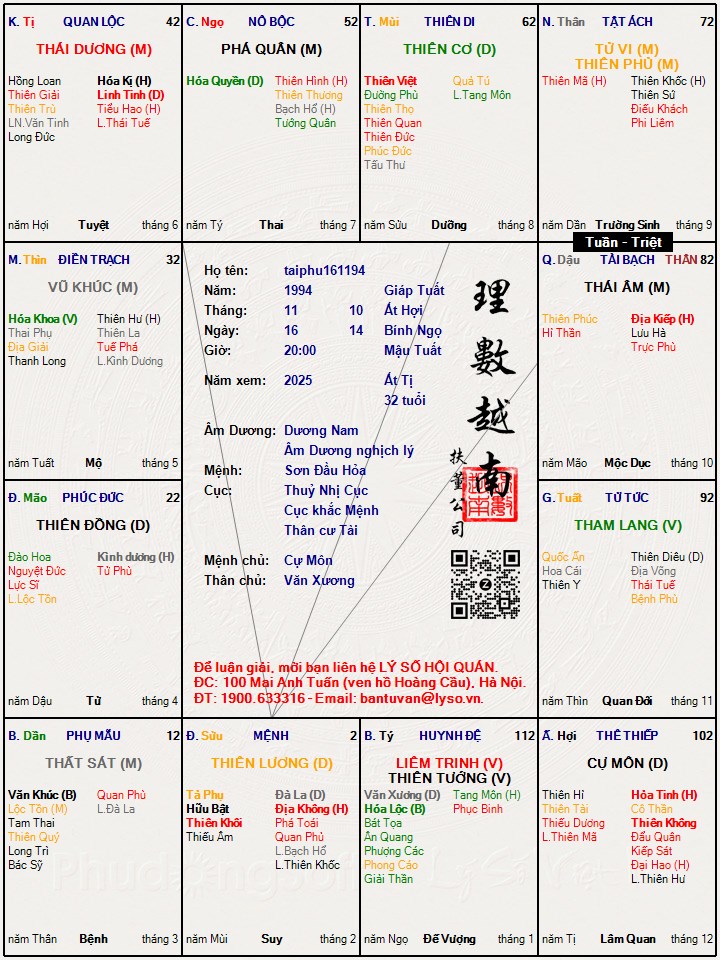 K. Tị QUAN LỘC 42
THÁI DƯƠNG (M)
Hồng Loan Hóa Kị (H)
Thiên Giải Linh Tinh (D)
Thiên Trù Tiểu Hao (H)
LN.Văn Tinh L.Thái Tuế
Long Đức
năm Hợi Tuyệt tháng 6
C. Ngọ NÔ BỘC 52
PHÁ QUÂN (M)
Hóa Quyền (D) Thiên Hình (H)
Thiên Thương
Bạch Hổ (H)
Tướng Quân
năm Tý Thai tháng 7
T. Mùi THIÊN DI 62
THIÊN CƠ (D)
Thiên Việt Quả Tú
Đường Phù L.Tang Môn
Thiên Thọ
Thiên Quan
Thiên Đức
Phúc Đức
Tấu Thư
năm Sửu Dưỡng tháng 8
N. Thân TẬT ÁCH 72
TỬ VI (M)
THIÊN PHỦ (M)
Thiên Mã (H) Thiên Khốc (H)
Thiên Sứ
Điếu Khách
Phi Liêm
năm Dần Trường Sinh tháng 9
Tuần - Triệt
M. Thìn ĐIỀN TRẠCH 32
VŨ KHÚC (M)
Hóa Khoa (V) Thiên Hư (H)
Thai Phụ Thiên La
Địa Giải Tuế Phá
Thanh Long L.Kình Dương
năm Tuất Mộ tháng 5
Họ tên: taiphu161194
Năm: 1994 Giáp Tuất
Tháng: 11 10 Ất Hợi
Ngày: 16 14 Bính Ngọ
Giờ: 20:00 Mậu Tuất
Năm xem: 2025 Ất Tị
32 tuổi
Âm Dương: Dương Nam
Âm Dương nghịch lý
Mệnh: Sơn Đầu Hỏa
Cục: Thuỷ Nhị Cục
Cục khắc Mệnh
Thân cư Tài
Mệnh chủ: Cự Môn
Thân chủ: Văn Xương
理數越南
扶董公司
Để luận giải, mời bạn liên hệ LÝ SỐ HỘI QUÁN.
ĐC: 100 Mai Anh Tuấn (ven hồ Hoàng Cầu), Hà Nội.
ĐT: 1900.633316 - Email: bantuvan@lyso.vn.
Q. Dậu TÀI BẠCH THÂN 82
THÁI ÂM (M)
Thiên Phúc Địa Kiếp (H)
Hỉ Thần Lưu Hà
Trực Phù
năm Mão Mộc Dục tháng 10
Đ. Mão PHÚC ĐỨC 22
THIÊN ĐỒNG (D)
Đào Hoa Kình dương (H)
Nguyệt Đức Tử Phù
Lực Sĩ
L.Lộc Tồn
năm Dậu Tử tháng 4
G. Tuất TỬ TỨC 92
THAM LANG (V)
Quốc Ấn Thiên Diêu (D)
Hoa Cái Địa Võng
Thiên Y Thái Tuế
Bệnh Phù
năm Thìn Quan Đới tháng 11
B. Dần PHỤ MẪU 12
THẤT SÁT (M)
Văn Khúc (B) Quan Phù
Lộc Tồn (M) L.Đà La
Tam Thai
Thiên Quý
Long Trì
Bác Sỹ
năm Thân Bệnh tháng 3
Đ. Sửu MỆNH 2
THIÊN LƯƠNG (D)
Tả Phụ Đà La (D)
Hữu Bật Địa Không (H)
Thiên Khôi Phá Toái
Thiếu Âm Quan Phủ
L.Bạch Hổ
L.Thiên Khốc
năm Mùi Suy tháng 2
B. Tý HUYNH ĐỆ 112
LIÊM TRINH (V)
THIÊN TƯỚNG (V)
Văn Xương (D) Tang Môn (H)
Hóa Lộc (B) Phục Binh
Bát Tọa
Ân Quang
Phượng Các
Phong Cáo
Giải Thần
năm Ngọ Đế Vượng tháng 1
Ấ. Hợi THÊ THIẾP 102
CỰ MÔN (D)
Thiên Hỉ Hỏa Tinh (H)
Thiên Tài Cô Thần
Thiếu Dương Thiên Không
L.Thiên Mã Đẩu Quân
Kiếp Sát
Đại Hao (H)
L.Thiên Hư
năm Tị Lâm Quan tháng 12